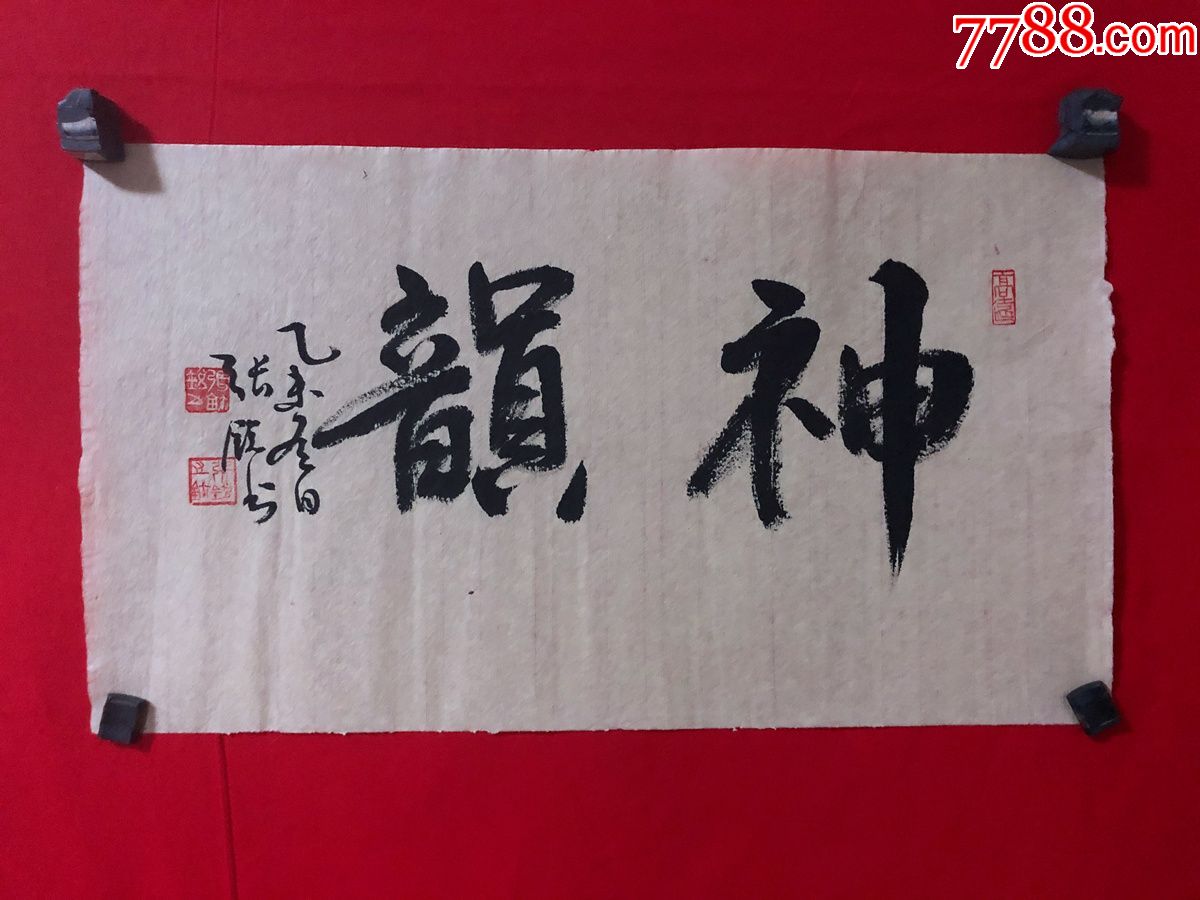 7788.com
神韻
乙未冬日
张
书